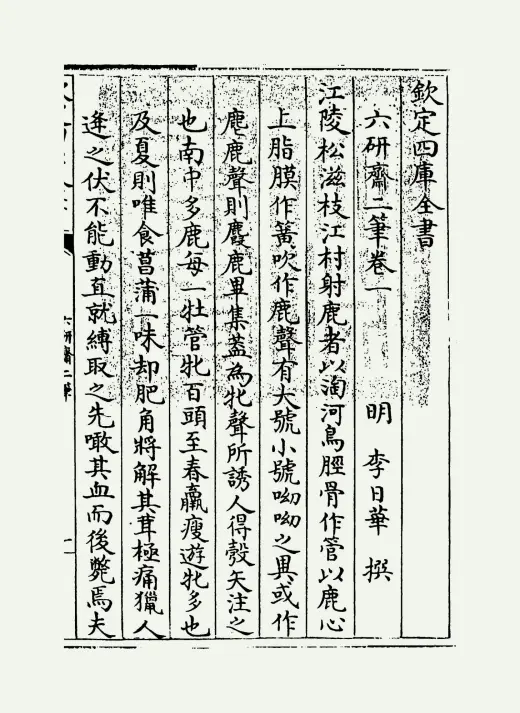 欽定四庫全書
六研齋二筆卷一
明 李日華 撰
江陵松滋枝江村射鹿者以淘河鳥脛骨作管以鹿心
上脂膜作簧吹作鹿聲有大號小號呦呦之異或作
麀鹿聲則麚鹿畢集蓋為牝聲所誘人得彀矢注之
也南中多鹿每一牡管牝百頭至春羸瘦遊牝多也
及夏則唯食菖蒲一味却肥角將解其茸極痛獵人
逢之伏不能動直就縛取之先噉其血而後斃焉夫
六研齋二筆
一